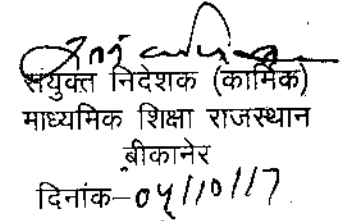 संयुक्त निदेशक (कार्मिक)
माध्यमिक शिक्षा राजस्थान
बीकानेर
दिनांक-04/10/17